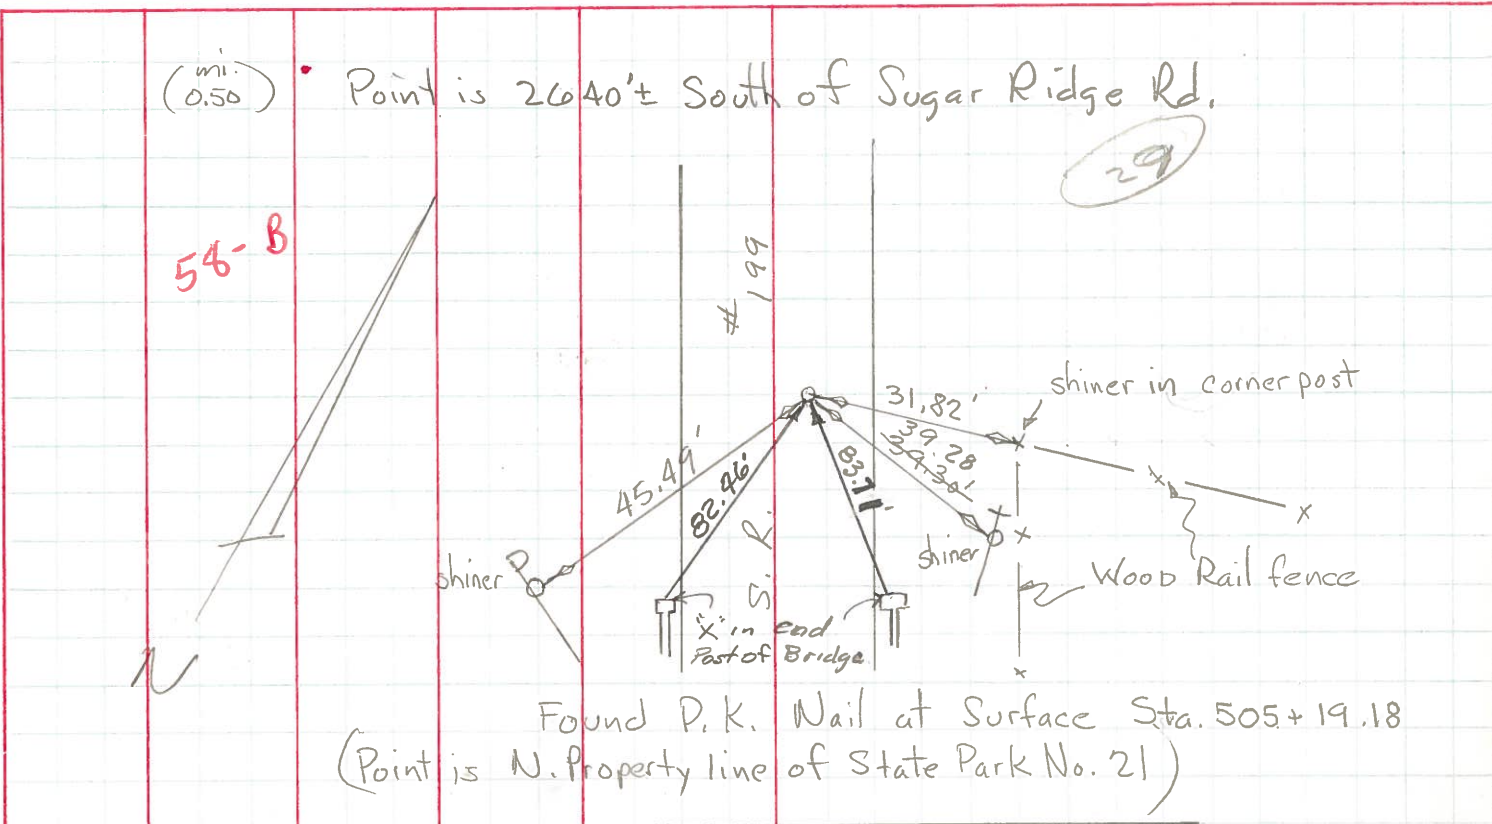 (mi.
0.50)
• Point is 2640'± South of Sugar Ridge Rd.
29
58-B
S. R. # 199
31.82'
shiner in corner post
39.28
39.30'
45.49'
82.46'
83.71'
shiner
shiner
Wood Rail fence
"X" in end
Post of Bridge
N
Found P.K. Nail at Surface Sta. 505+19.18
(Point is N. Property line of State Park No. 21)